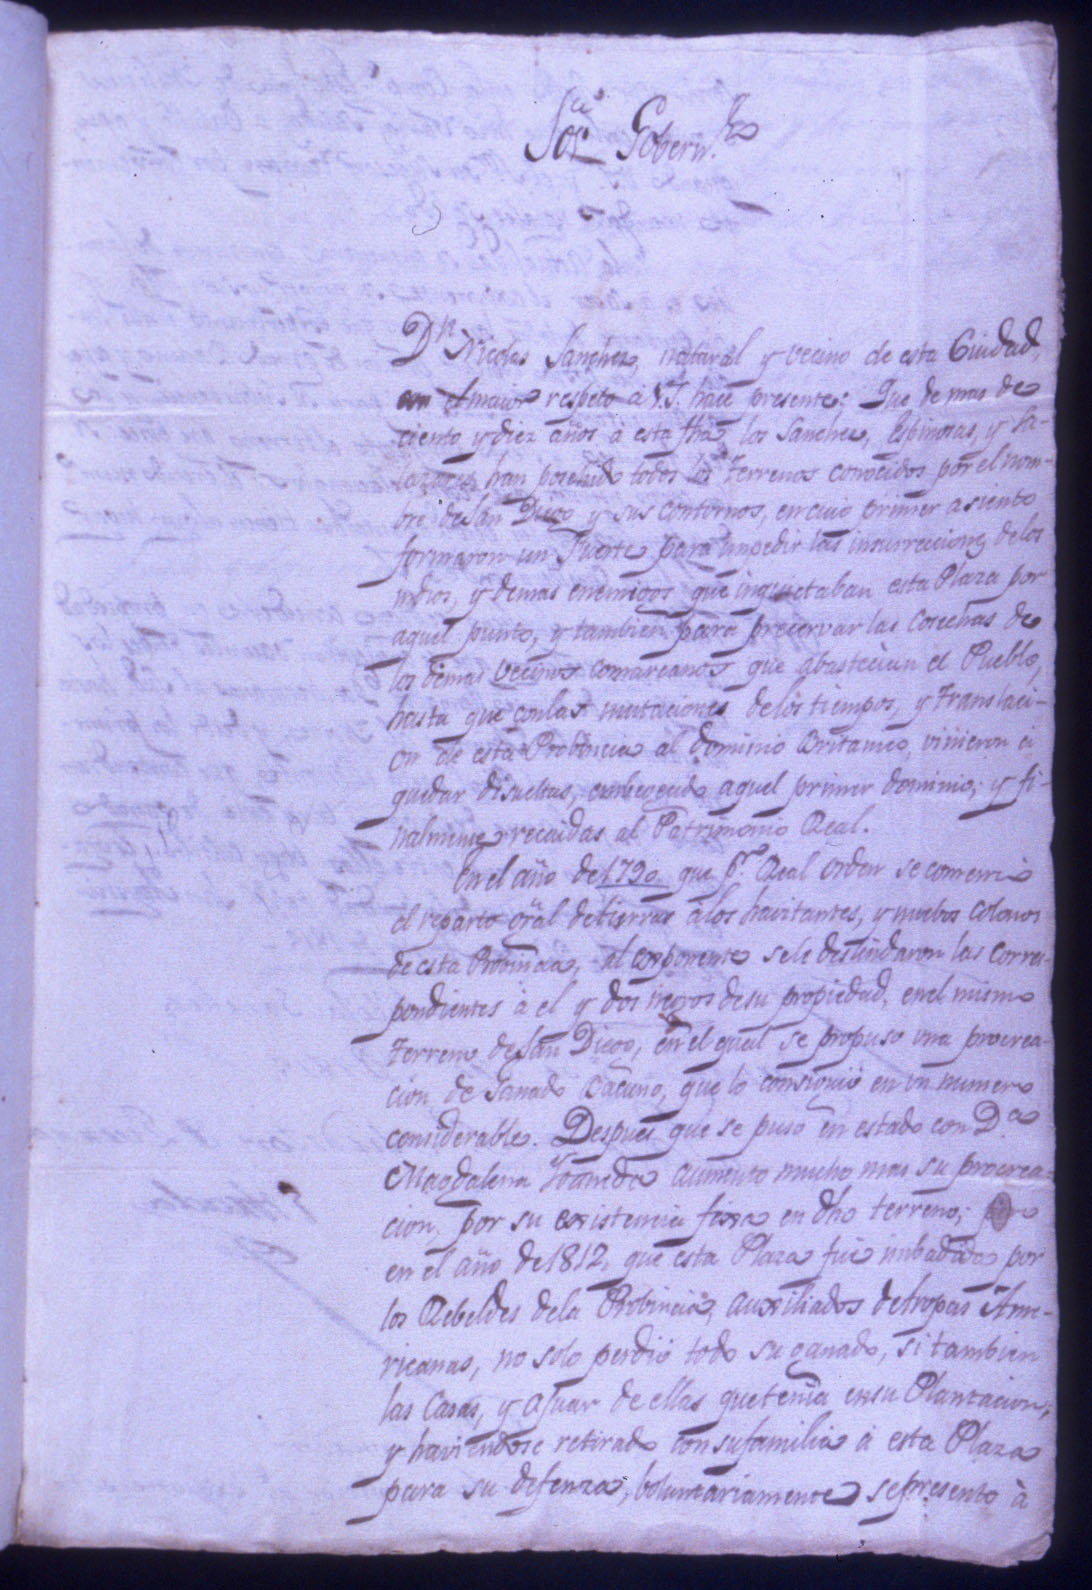 Sor Govern.or
Dn Nicolas Sanchez, natural y vecino de esta Ciudad,
con el maior respeto à V.S. hace presente: Que de mas de
ciento y diez años à esta fha, los Sanchez, Espinosas, y Sa-
lazares han posehido todos los Terrenos conocidos por el nom-
bre de San Diego y sus contornos, en cuio primer asiento
formaron un Fuerte para impedir las insurrecciones de los
indios, y demas enemigos que inquietaban esta Plaza por
aquel punto, y tambien para precervar las Cosechas de
los demas vecinos comarcanos que abastecian el Pueblo,
hasta que con las mutaciones de los tiempos, y translaci-
on de esta Probincia al dominio Britanico, vinieron à
quedar disueltas, aquel primer dominio; y fi-
nalmente recaidas al Patrimonio Real.
En el año de 1790 que pr. Real orden se comenzó
el reparto gral de tierras à los havitantes, y nuebos colonos
de esta Probincia, al exponente se le deslindaron las corres-
pondientes à el y dos negros de su propiedad, en el mismo
Terreno de San Diego, en el qual se propuso una procrea-
cion de Ganado Bacuno, que lo consiguió en un numero
considerable. Despues que se puso en estado con Da
Magdalena Joaneda aumento mucho mas su procrea-
cion, por su existencia fixa en dho terreno; pero
en el año de 1812, que esta Plaza fue imbadida por
los Rebeldes de la Probincia, auxiliados de tropas Ame-
ricanas, no solo perdió todo su ganado, si tambien
las Casas, y ajuar de ellas que tenia en su Plantacion;
y haviendose retirado con su familia à esta Plaza
para su defenza, boluntariamente se presento à